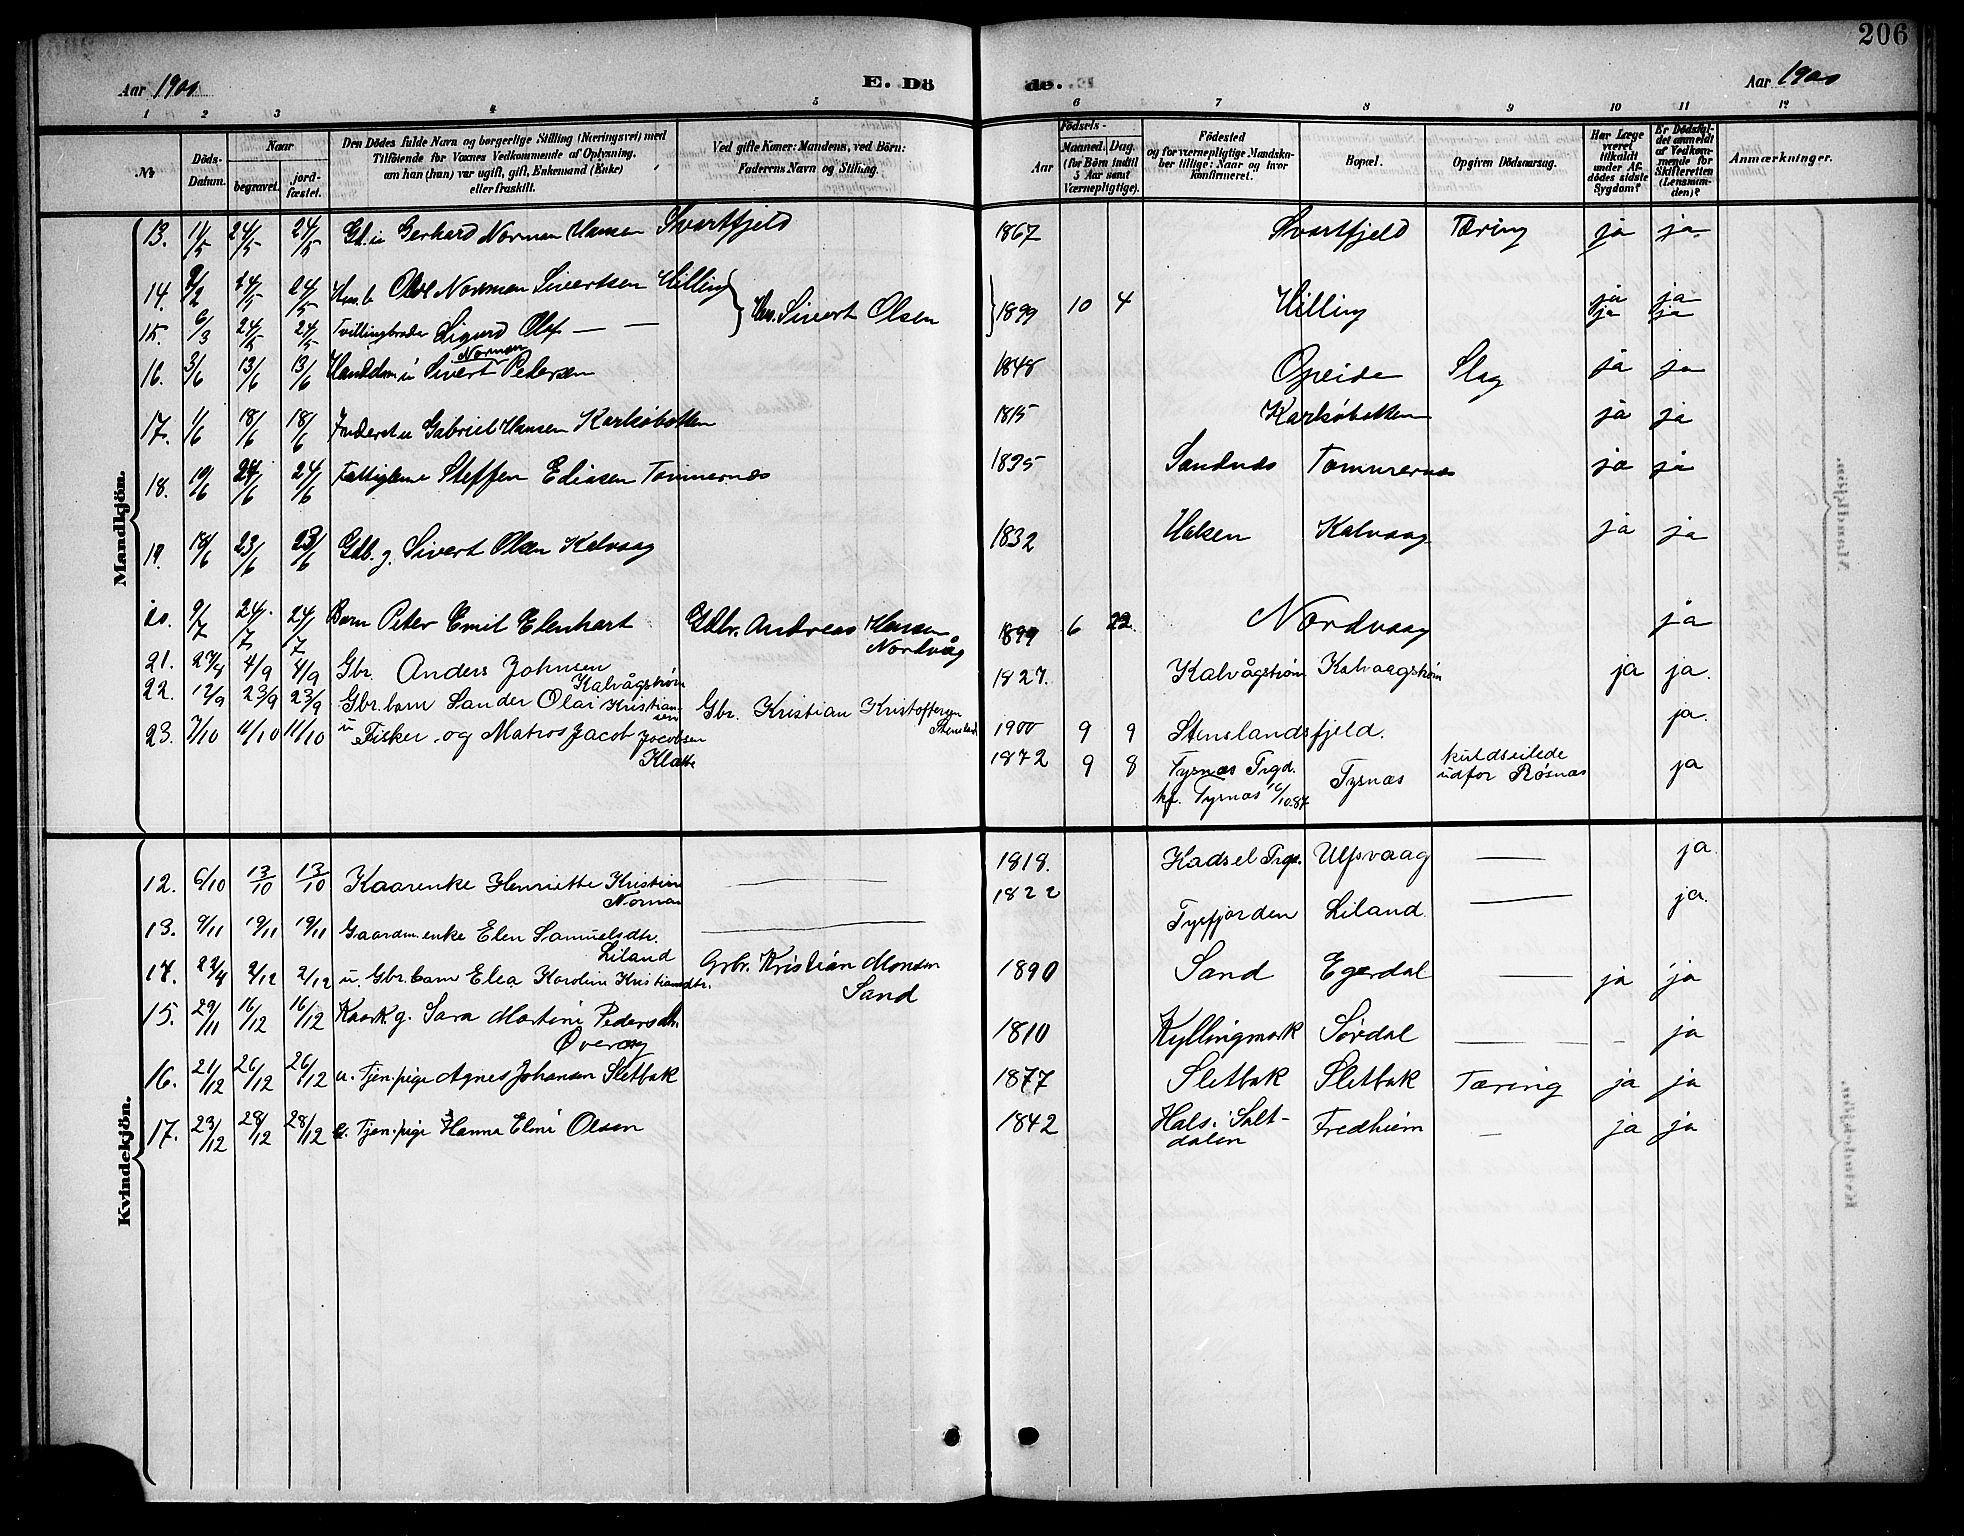 206
Aar 1900 E. Dö de. Aar 1900
1 2 3 4 5 6 7 8 9 10 11 12
№
Döds-Datum.
Naar
begravet.
jord-fæstet.
Den Dödes fulde Navn og borgerlige Stilling (Næringsvei) med
Tilföiende for Voxnes Vedkommende af Oplysning,
om han (hun) var ugift, gift, Enkemand (Enke)
eller fraskilt.
Ved gifte Koner: Mandens, ved Börn:
Faderens Navn og Stilling.
Födsels-
Aar
Maaned. Dag.
(for Börn indtil
5 Aar samt
Værnepligtige).
Födested
og for værnepligtige Mandska-
ber tillige: Naar og hvor
konfirmeret.
Bopæl.
Opgiven Dödsaarsag.
Har Læge
været
tilkaldt
under Af-
dödes sidste
Sygdom?
Er Dödsfal-
det anmeldt
af Vedkom-
mende for
Skifteretten
(Lensman-
den)?
Anmærkninger.
Mandkjön.
13. 14/5 24/5 24/5 Gd. u Gerhard Norman Hansen Svartfjeld 1867 Svartfjeld Tæring ja ja
14. 9/2 24/5 24/5 Hus. b Olve Norman Sivertsen Hilling } Hus. Sivert Olsen } 1899 10 4 Hilling ja ja
15. 6/3 24/5 24/5 Tvillingbroder Sigurd Olaf — — ja ja
16. 3/6 13/6 13/6 Handelsm. u Sivert Norman Petersen 1848 Opeide Slag ja ja
17. 1/6 18/6 18/6 Inderst u Gabriel Hansen Karlsöbotten 1815 Karlsöbotten ja ja
18. 19/6 24/6 24/6 Fattiglem e Steffen Ediasen Tommernæs 1835 Sandnæs Tommernæs ja ja
19. 18/6 23/6 23/6 Gdb. g. Sivert Olsen Kalvaag 1832 Haken Kalvaag ja ja
20. 9/7 24/7 24/7 Barn Peter Emil Edenhart Gdbr. Andreas Hansen Nordvåg 1899 6 22 Nordvaag ja
21. 27/8 4/9 4/9 Gbr. Anders Johnsen Kalvågstrøm 1827. Kalvågstrøm Kalvaagstrøm ja ja.
22. 12/9 23/9 23/9 Gbr. barn Sander Olai Kristiansen Gbr. Kristian Kristoffersen Stensland 1900 9 9 Stenslandsfjeld. ja.
23. 7/10 11/10 11/10 u Fisker og Matros Jacob Jacobsen Klatte 1872 9 8 Tysnæs Prgd. kf. Tysnæs /10.87 Tysnæs kuldseilede udfor Røsnæs ja
Kvindekjön.
12. 6/10 13/10 13/10 Kaarenke Henriette Kristine Norman — 1818. Hadsel Prgd. Ulfsvaag — ja
13. 9/11 19/11 19/11 Gaardm. enke Elen Samuelsdtr. Liland — 1822 Tysfjorden Liland. — ja.
14. 2/12 2/12 u. Gbr. barn Elea Karoline Kristiansdtr. Grbr. Kristian Monsen Sand 1890 Sand Egerdal — ja ja
15. 29/11 16/12 16/12 Kaark. g. Sara Martine Pedersdtr. Överaas 1810 Kyllingmark Sørdal — — ja
16. 21/12 26/12 26/12 u. Tjen. pige Agnes Johansen Sletbak 1877 Sletbak Sletbak Tæring ja ja
17. 23/12 28/12 28/12 e. Tjen. pige Hanna Eline Olsen 1842 Hals i Salt-dalen Fredheim — ja ja